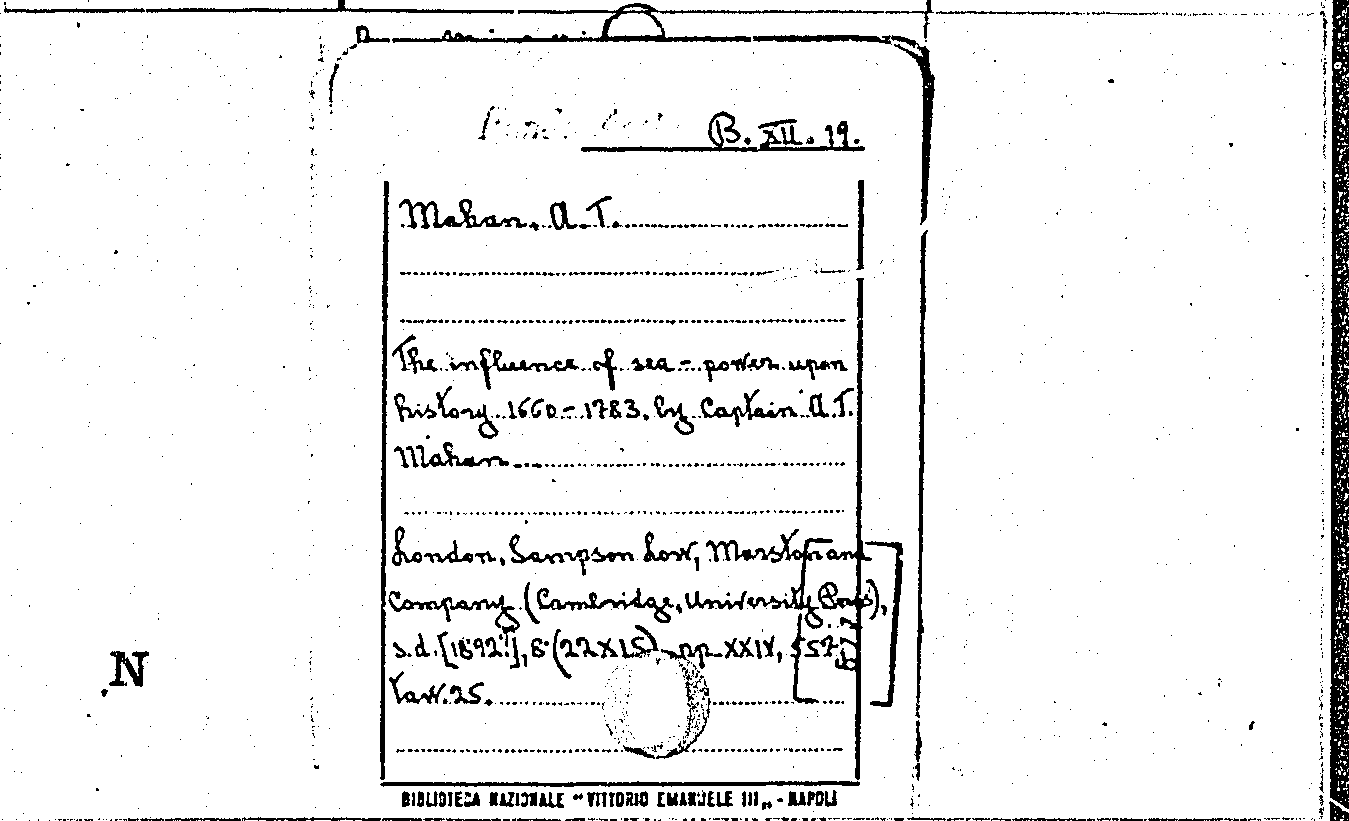 B. XII. 19.
Mahan, A. T.
The influence of sea-power upon
history 1660-1783, by Captain A.T.
Mahan
London, Sampson Low, Marston and
Company (Cambridge, University Press),
s.d. [1892?], 8° (22X15) pp. XXIV, 557
tav. 25.
N
BIBLIOTECA NAZIONALE "VITTORIO EMANUELE III„ - NAPOLI